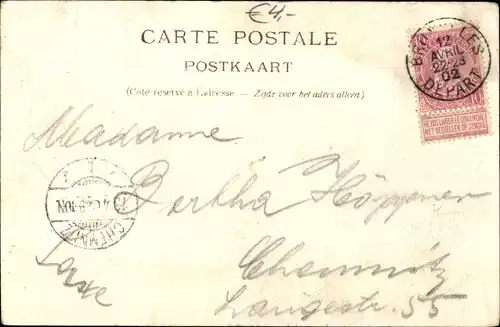 €4,-
CARTE POSTALE
POSTKAART
(Côté réservé à l'adresse. — Zijde voor het adres alleen)
BRUXELLES
12
AVRIL
22-23
02
DEPART
NE PAS LIVRER LE DIMANCHE
NIET BESTELLEN OP ZONDAG
Madame
Bertha Höppner
CHEMNITZ
Saxe
Chemnitz
Langestr. 55